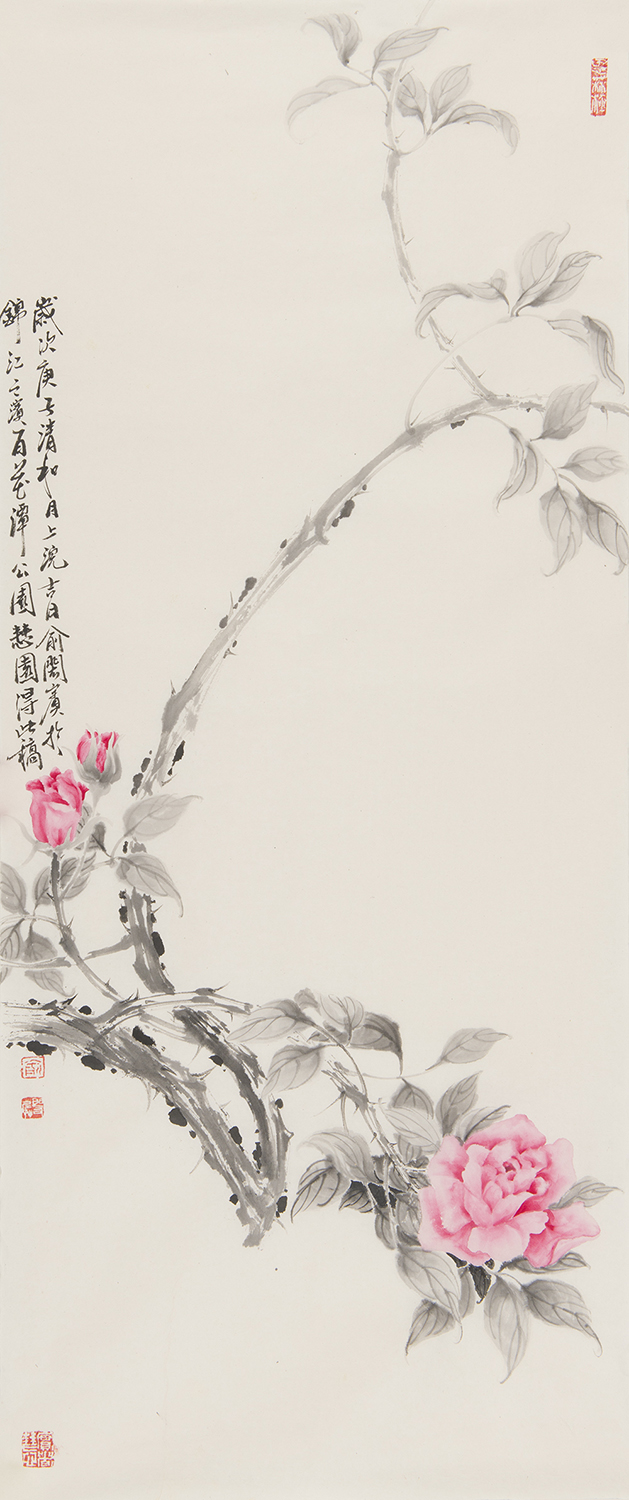 歲次庚子清和月上浣吉日俞閣賓於
錦江之濱百花潭公園慧園得此稿